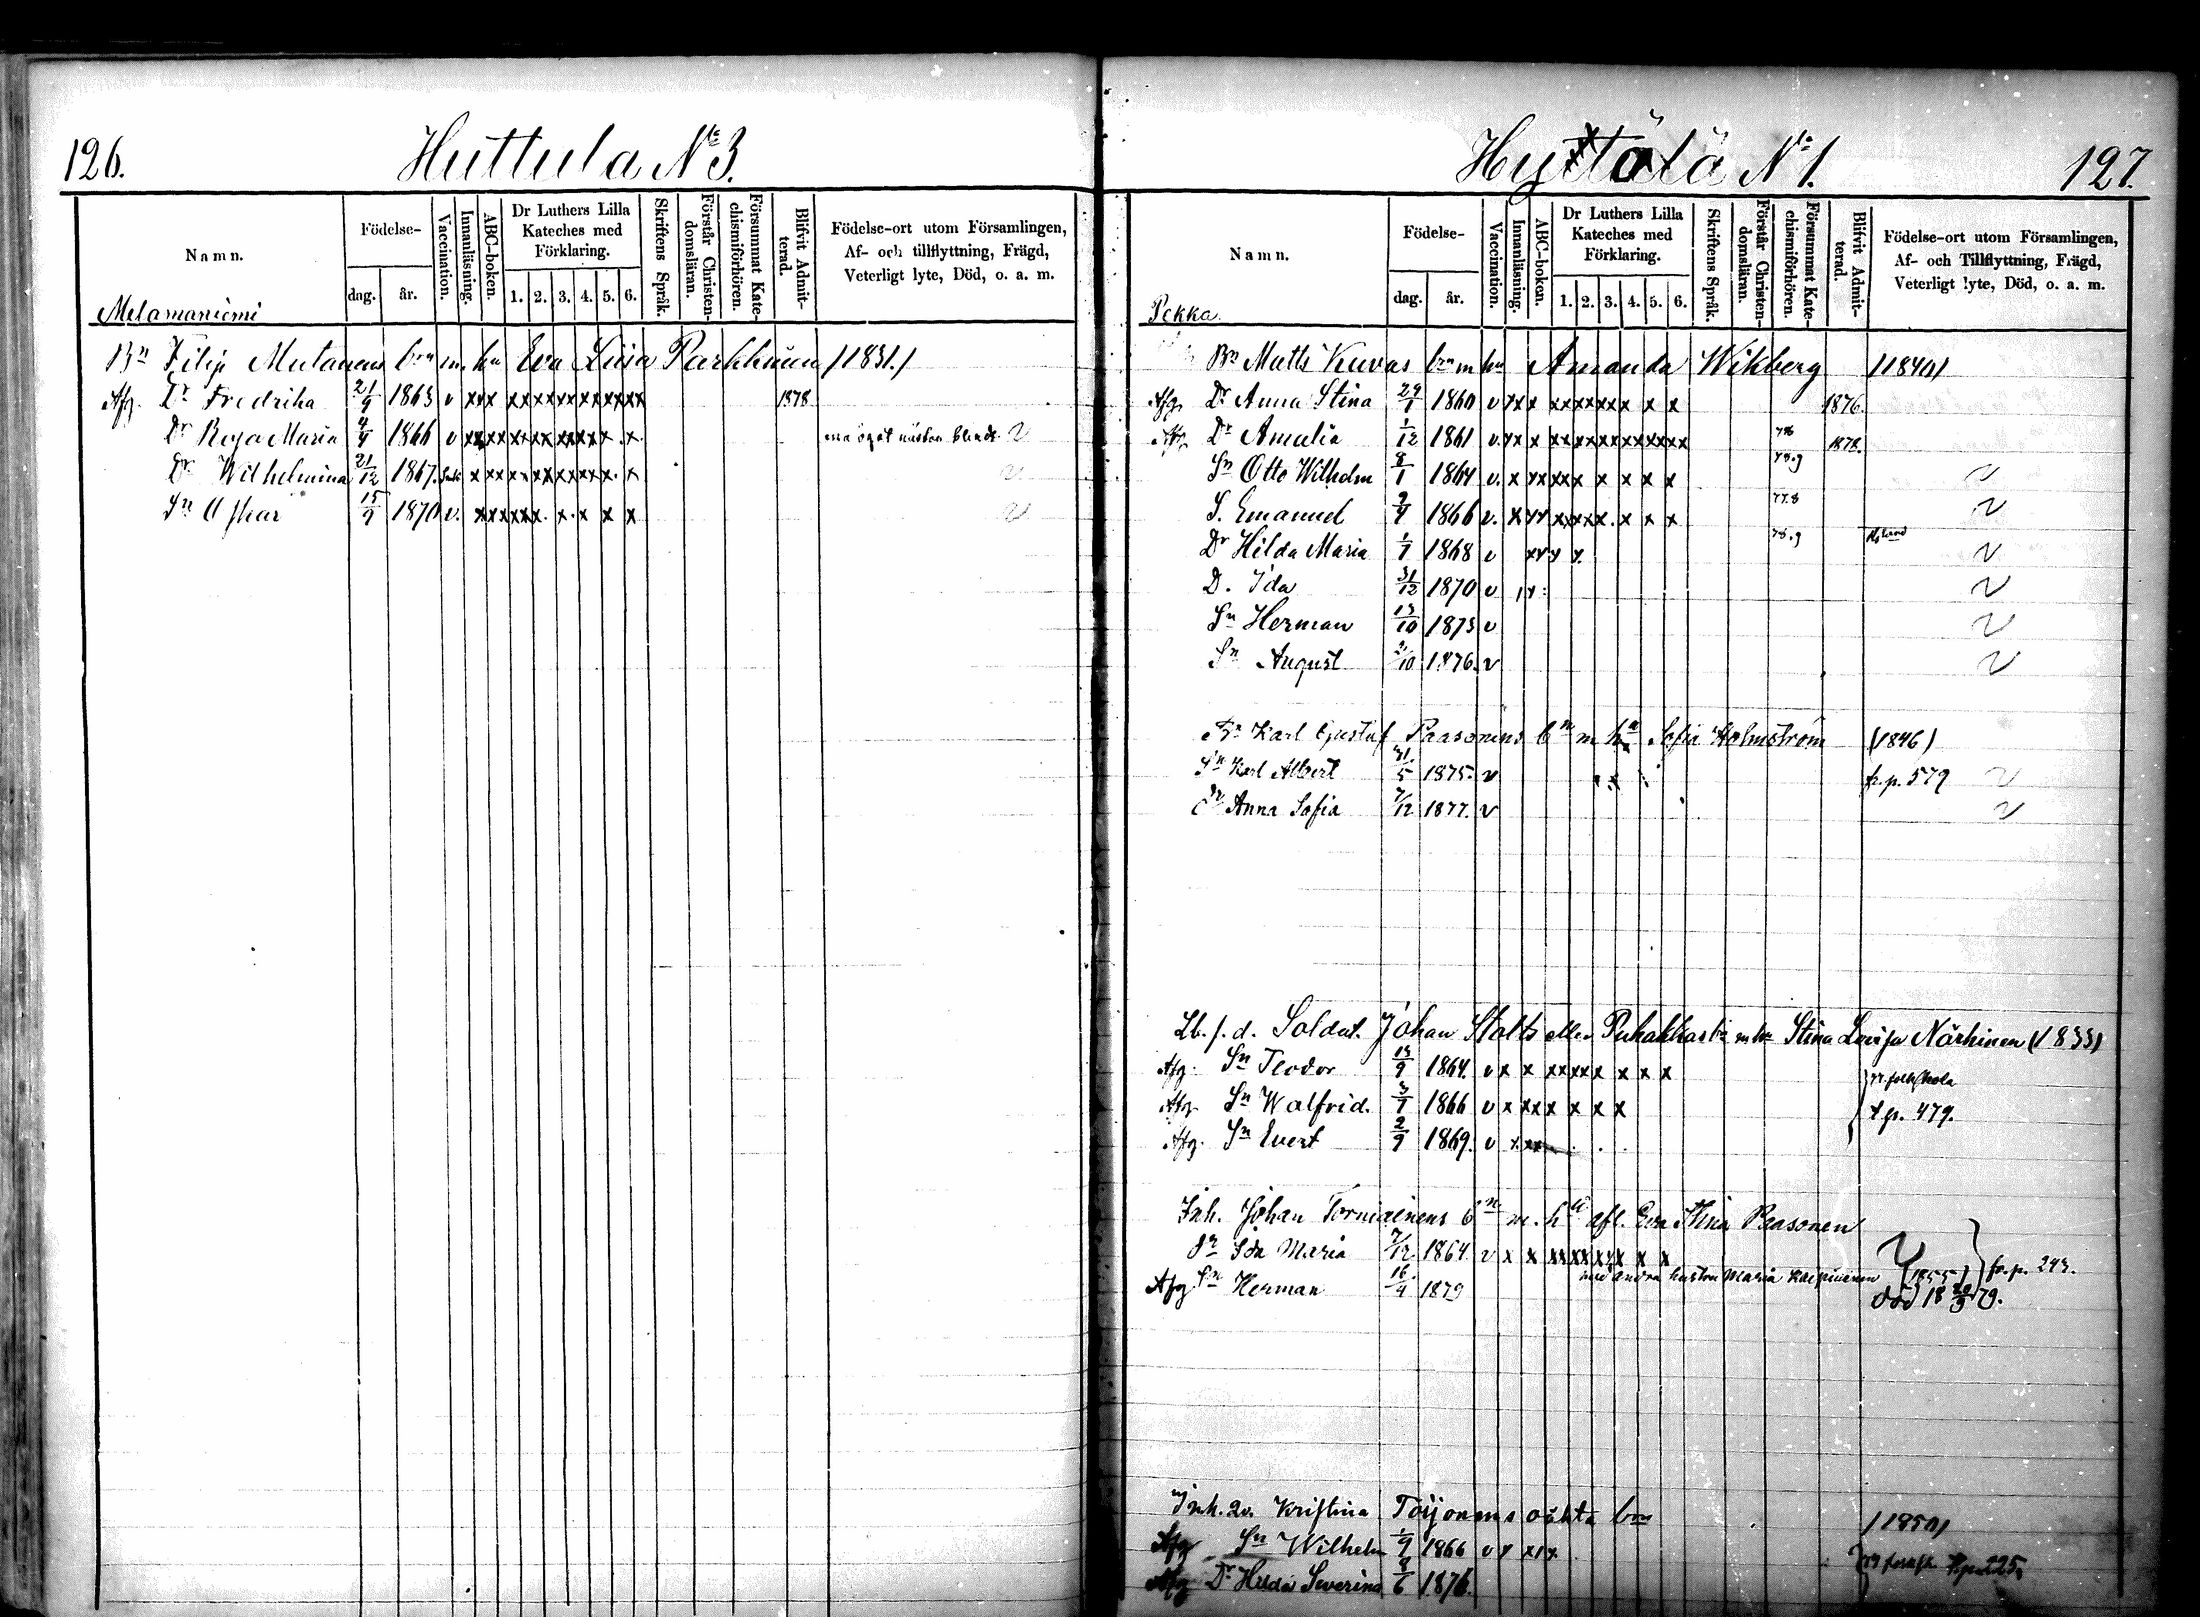 126.
Huttula No 3.
Namn.
Födelse-
dag.
år.
Vaccination.
Innanläsning.
ABC-boken.
Dr Luthers Lilla
Kateches med
Förklaring.
1. 2. 3. 4. 5. 6.
Skriftens Språk.
Förstår Christen-
domsläran.
Försummat Kate-
chismiförhören.
Blifvit Admit-
terad.
Födelse-ort utom Församlingen,
Af- och tillflyttning, Frägd,
Veterligt lyte, Död, o. a. m.
Melamaniemi
Bn Filip Mutanens brn m. hu Eva Liisa Parkkinen (1831.)
Afg. Dr Fredrika 21/9 1863 v xxx xxxxxxxxxxxx 1878
Dr Rosa Maria 4/4 1866 v ena ögat nästan blindt
Dr Wilhelmina 21/12 1867.
Sn Oskar 15/9 1870 v.
Hyttölä No 1.
127.
Namn.
Födelse-
dag.
år.
Vaccination.
Innanläsning.
ABC-boken.
Dr Luthers Lilla
Kateches med
Förklaring.
1. 2. 3. 4. 5. 6.
Skriftens Språk.
Förstår Christen-
domsläran.
Försummat Kate-
chismiförhören.
Blifvit Admit-
terad.
Födelse-ort utom Församlingen,
Af- och Tillflyttning, Frägd,
Veterligt lyte, Död, o. a. m.
Pekka.
Bn Matts Kuvas brn m hu Amanda Wikberg (1840)
Afg. Dr Anna Stina 29/1 1860 v 1876.
Afg Dr Amalia 1/12 1861 v. 78 1878.
Sn Otto Wilhelm 8/1 1864 v. 78.9
S. Emanuel 1866 v. 77.8
Dr Hilda Maria 1/7 1868 v 78.9
D. Ida 31/12 1870 v
Sn Herman 13/10 1873 v
Sn August 2/10 1876. v
Bn Karl Gustaf Paasonens bn m hu Sofia Holmström (1846)
Sn Karl Albert 31/5 1875. v fr. p. 579
Dr Anna Sofia 7/12 1877. v
Lb. f. d. Soldat. Johan Stolts eller Puhakkas bn m hu Stina Lovisa Närhinen (1833)
Afg. Sn Teodor 13/9 1864. v folkskola
Afg. Sn Walfrid. 3/7 1866 v t. p. 479.
Afg. Sn Evert 2/9 1869. v
Inh. Johan Torniainens bn m. hu afl. Eva Stina Paasonen
Dr Ida Maria 7/12 1864. v
med andra hustru Maria (1855) fr. p. 243.
Afg Sn Herman 16/4 1879 död 18 20/9 79.
Inh. Kristina oäkta brn (1850)
Afg Sn Wilhelm 1/9 1866 v
Afg Dr Hilda Severina 8/6 1876. p. 225.